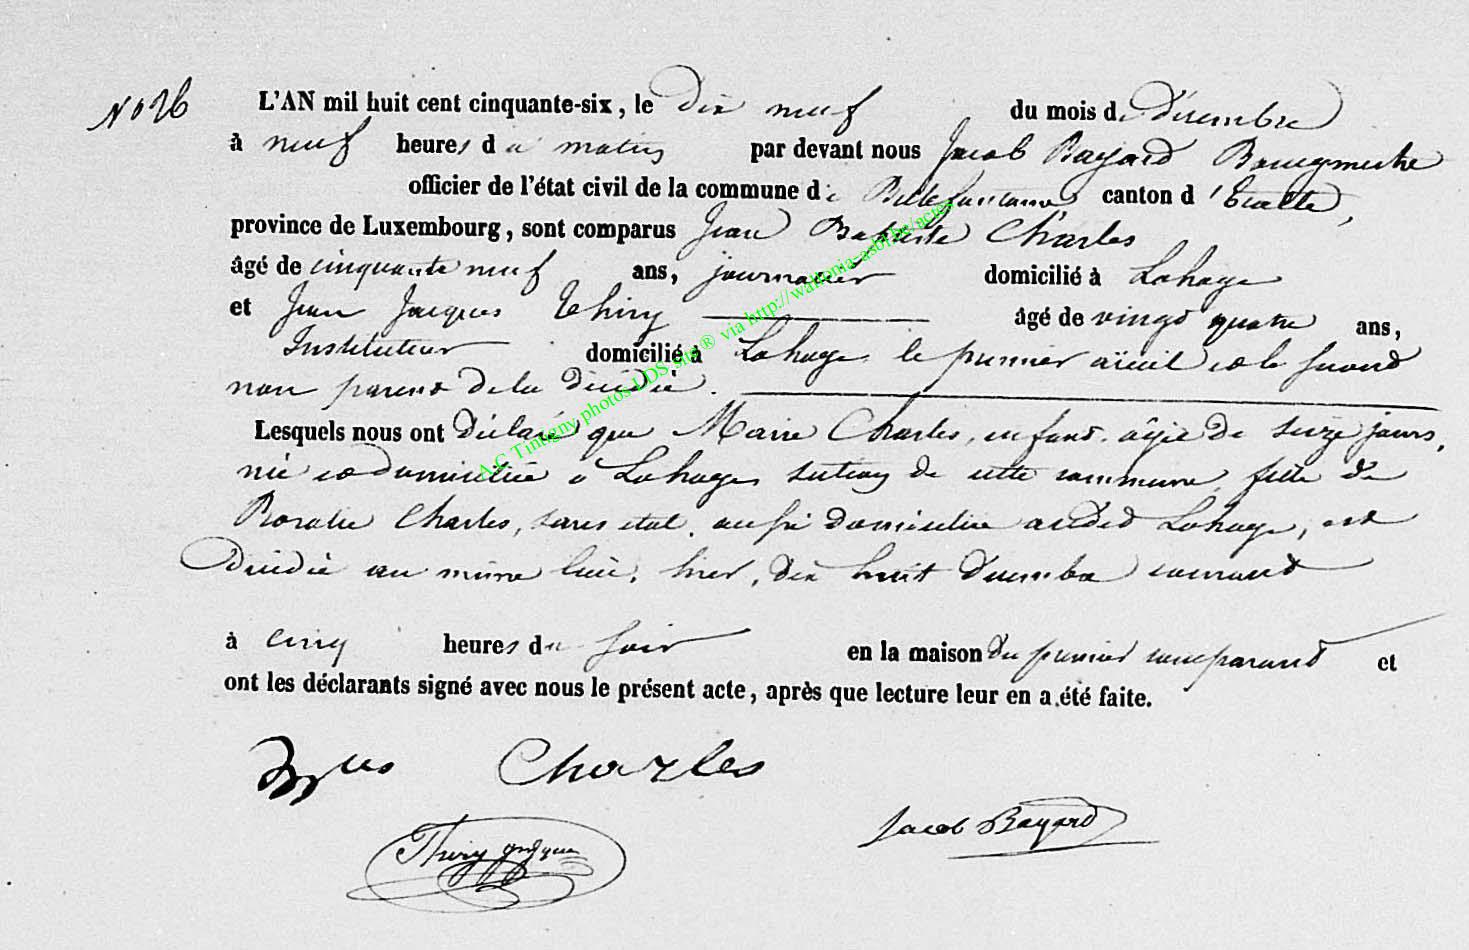 No 26
L'AN mil huit cent cinquante-six, le dix neuf du mois de décembre
à neuf heures du matin par devant nous Jacob Bayard Bourgmestre
officier de l'état civil de la commune de Bellefontaine canton d'Etalle,
province de Luxembourg, sont comparus Jean Baptiste Charles
âgé de cinquante neuf ans, journalier domicilié à Lahage
et Jean Jacques Thiry âgé de vingt quatre ans,
Instituteur domicilié à Lahage, le premier aïeul et le second
non parent de la décédée.
Lesquels nous ont déclaré que Marie Charles, enfant âgée de seize jours,
née et domiciliée à Lahage section de cette commune, fille de
Rosalie Charles, sans état, aussi domiciliée audit Lahage, est
décédée au même lieu, hier, dix huit décembre courant
à cinq heures du soir en la maison du premier comparant et
ont les déclarants signé avec nous le présent acte, après que lecture leur en a été faite.
Charles
Thiry Jacob Bayard
A.C Tintigny photos LDS site ® via http://wallonia-asbl.be/actes